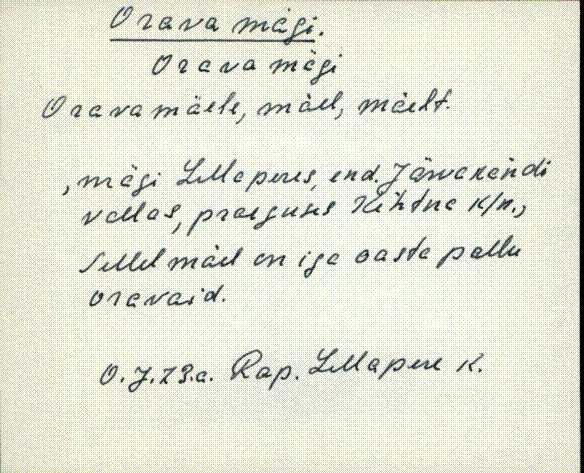 Orava mägi.
Orava mägi
Oravamäele, mäel, mäelt.
, mägi Lellaperes, end. Järvakandi
vallas, praeguses Kehtna k/n.,
Sellel mäel on iga aasta palju
oravaid.
O. J. 23.a. Rap. Lellapere k.